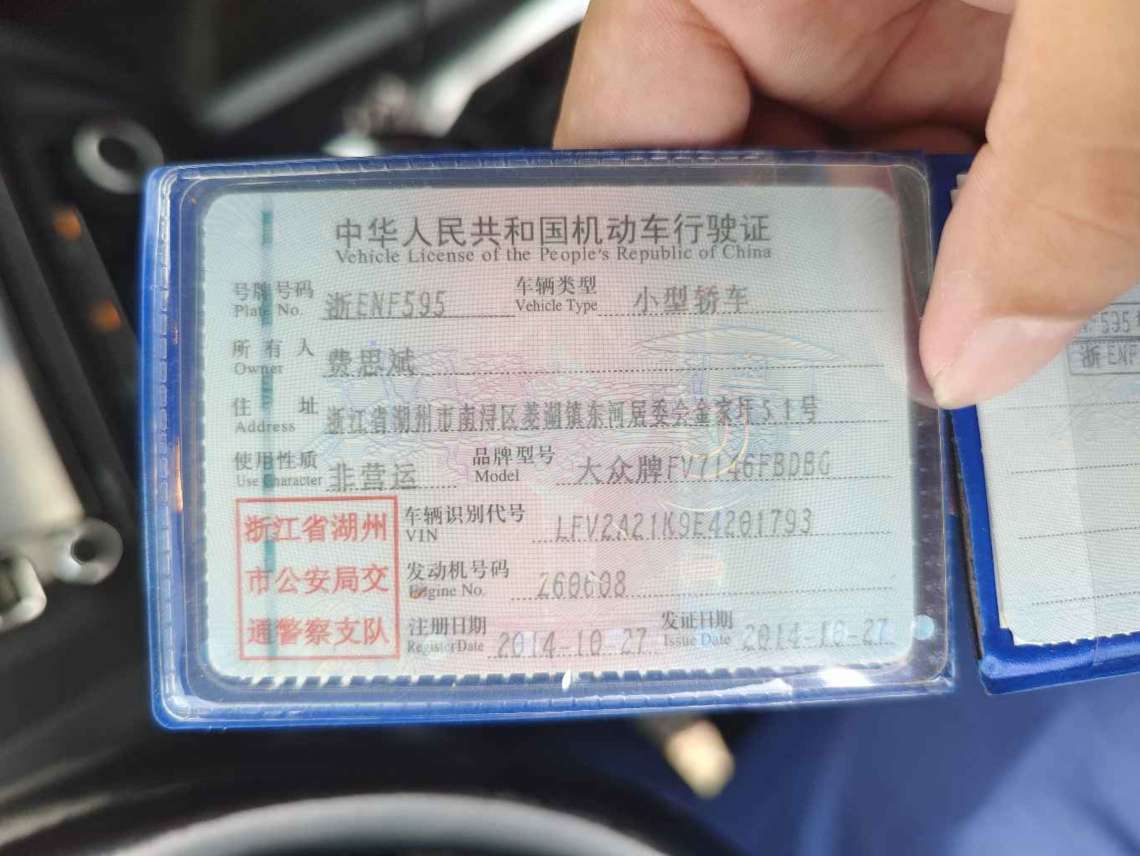 中华人民共和国机动车行驶证
Vehicle License of the People's Republic of China
号牌号码 浙ENF595 车辆类型 小型轿车
Plate No. Vehicle Type
所有人 费思斌
Owner
住址 浙江省湖州市南浔区菱湖镇东河居委会金家坪51号
Address
使用性质 非营运 品牌型号 大众牌FV7146FBDBG
Use Character Model
浙江省湖州
市公安局交
通警察支队
车辆识别代号 LFV2A21K9E4201793
VIN
发动机号码 Z60608
Engine No.
注册日期 2014-10-27 发证日期 2014-10-27
Register Date Issue Date
NF595
浙ENF